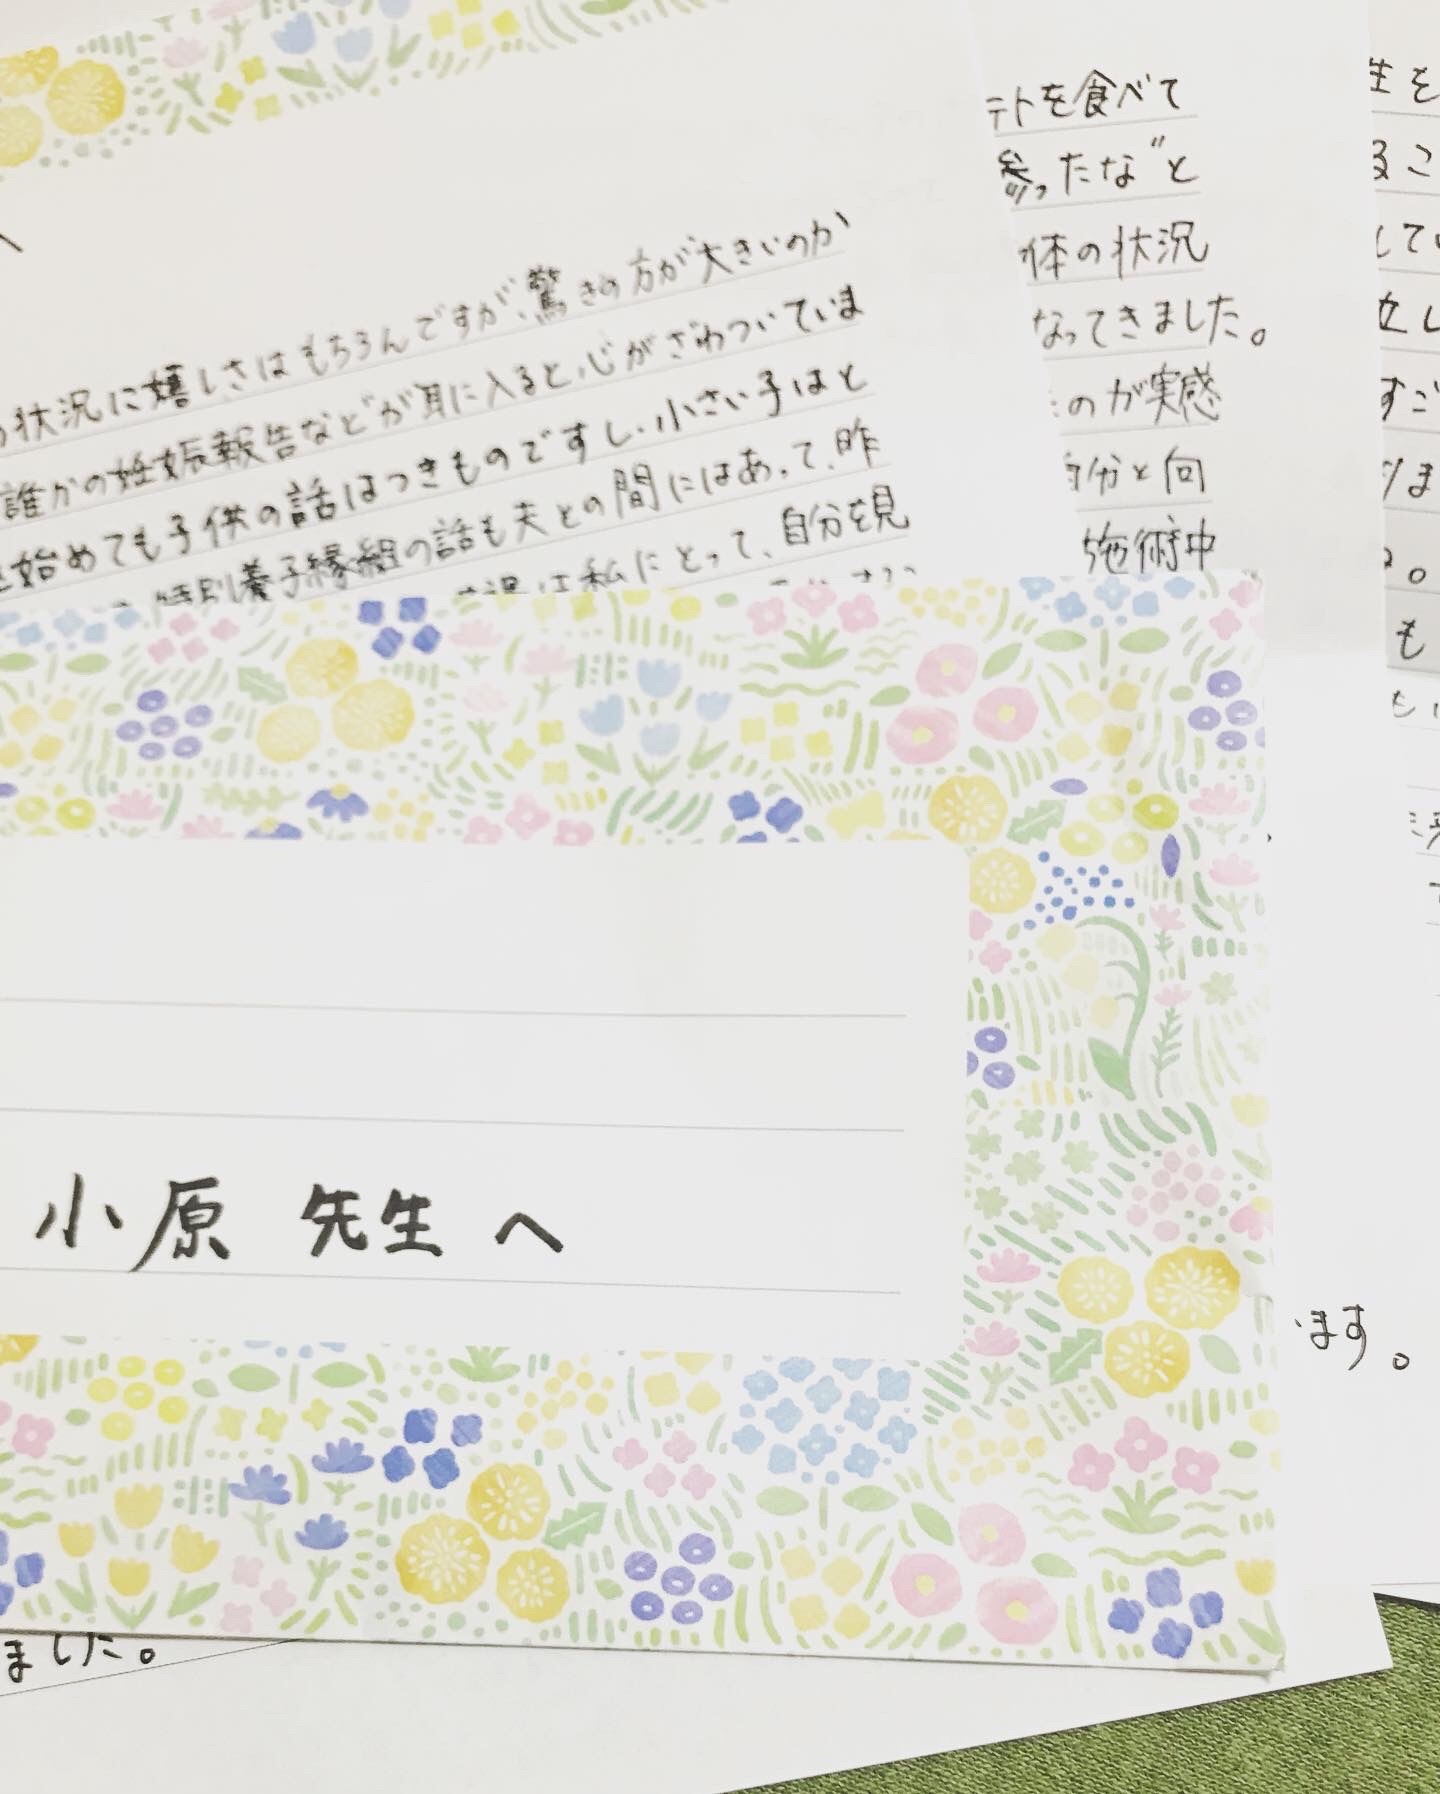 へ
状況に嬉しさはもちろんですが、驚きの方が大きいのか
誰かの妊娠報告などが耳に入ると、心がざわついていま
始めても子供の話はつきものですし、小さい子はと
特別養子縁組の話も夫との間にはあって、昨
は私にとって、自分を見
テトを食べて
参ったな”と
体の状況
なってきました。
のが実感
自分と向
施術中
生を
るこ
して
立し
すご
りま
。
も
小原 先生 へ
ます。
ました。